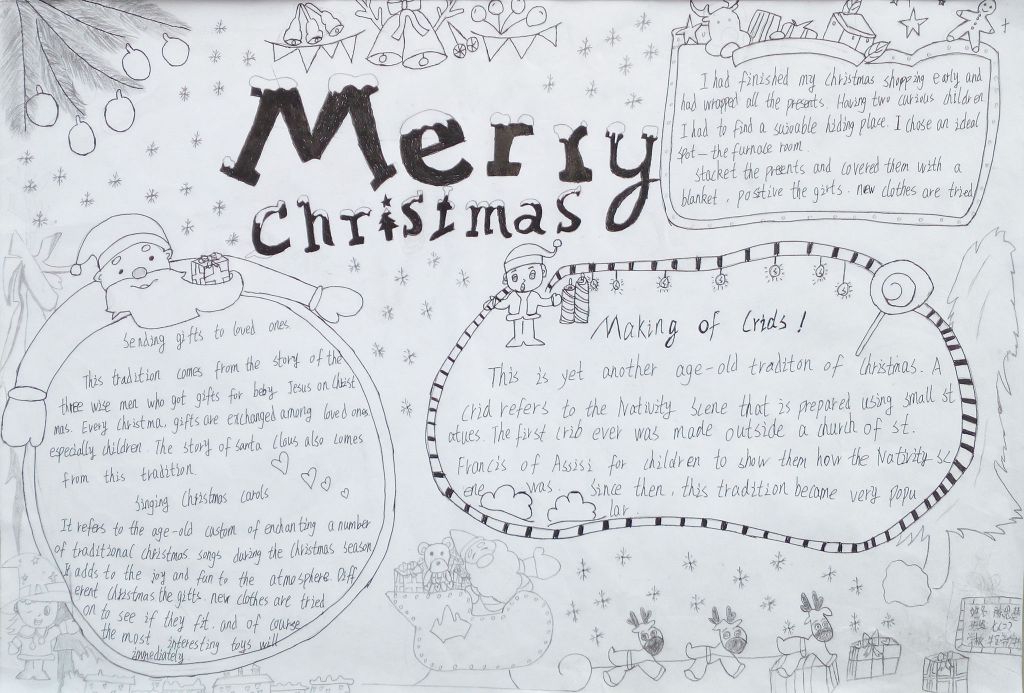 Merry
Christmas
I had finished my christmas shopping early and
had wrapped all the presents. Having two curious children
I had to find a suioable hiding place. I chose an ideal
spot — the furnace room.
stacket the preents and covered them with a
blanket, positive the girts. new clothes are tried
Sending gifts to loved ones.
This tradition comes from the story of the
three wise men who got gifts for beby Jesus on Christ
mas. Every christma, gifts are exchanged among loved ones
especially children. The story of santa Claus also comes
from this tradition.
singing Christmas carols
It refers to the age-old custom of enchanting a number
of traditional christmas songs during the Christmas season
It adds to the joy and fun to the atmosphere. Diff
erent Christmas the gifts. new clothes are tried
on to see if they fit. and of course
the most interesting toys will
immediately
Making of Crids!
This is yet another age-old traditon of Christmas. A
crid refers to the Nativity Scene that is prepared using small st
atues. The first crib ever was made outside a church of st.
Francis of Assisi for children to show them how the Nativity sc
ene was. Since then, this tradition became very popu
lar.